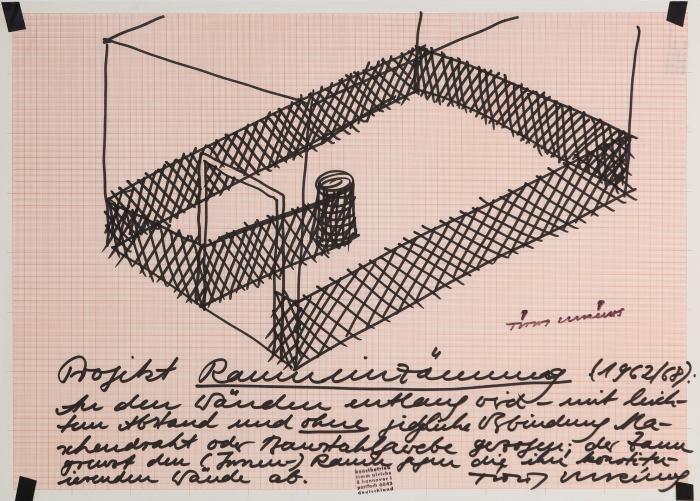 timm ulrichs
Projekt Raumeinzäunung (1962/68).
An den Wänden entlang wird – mit leich-
tem Abstand und ohne jegliche Verbindung Ma-
schendraht oder Baustahlgewebe gezogen; der Zaun
grenzt den (Innen-) Raum gegen die ihn konstitu-
ierenden Wände ab. timm ulrichs
kunstbetrieb
timm ulrichs
3 hannover 1
postfach 6043
deutschland